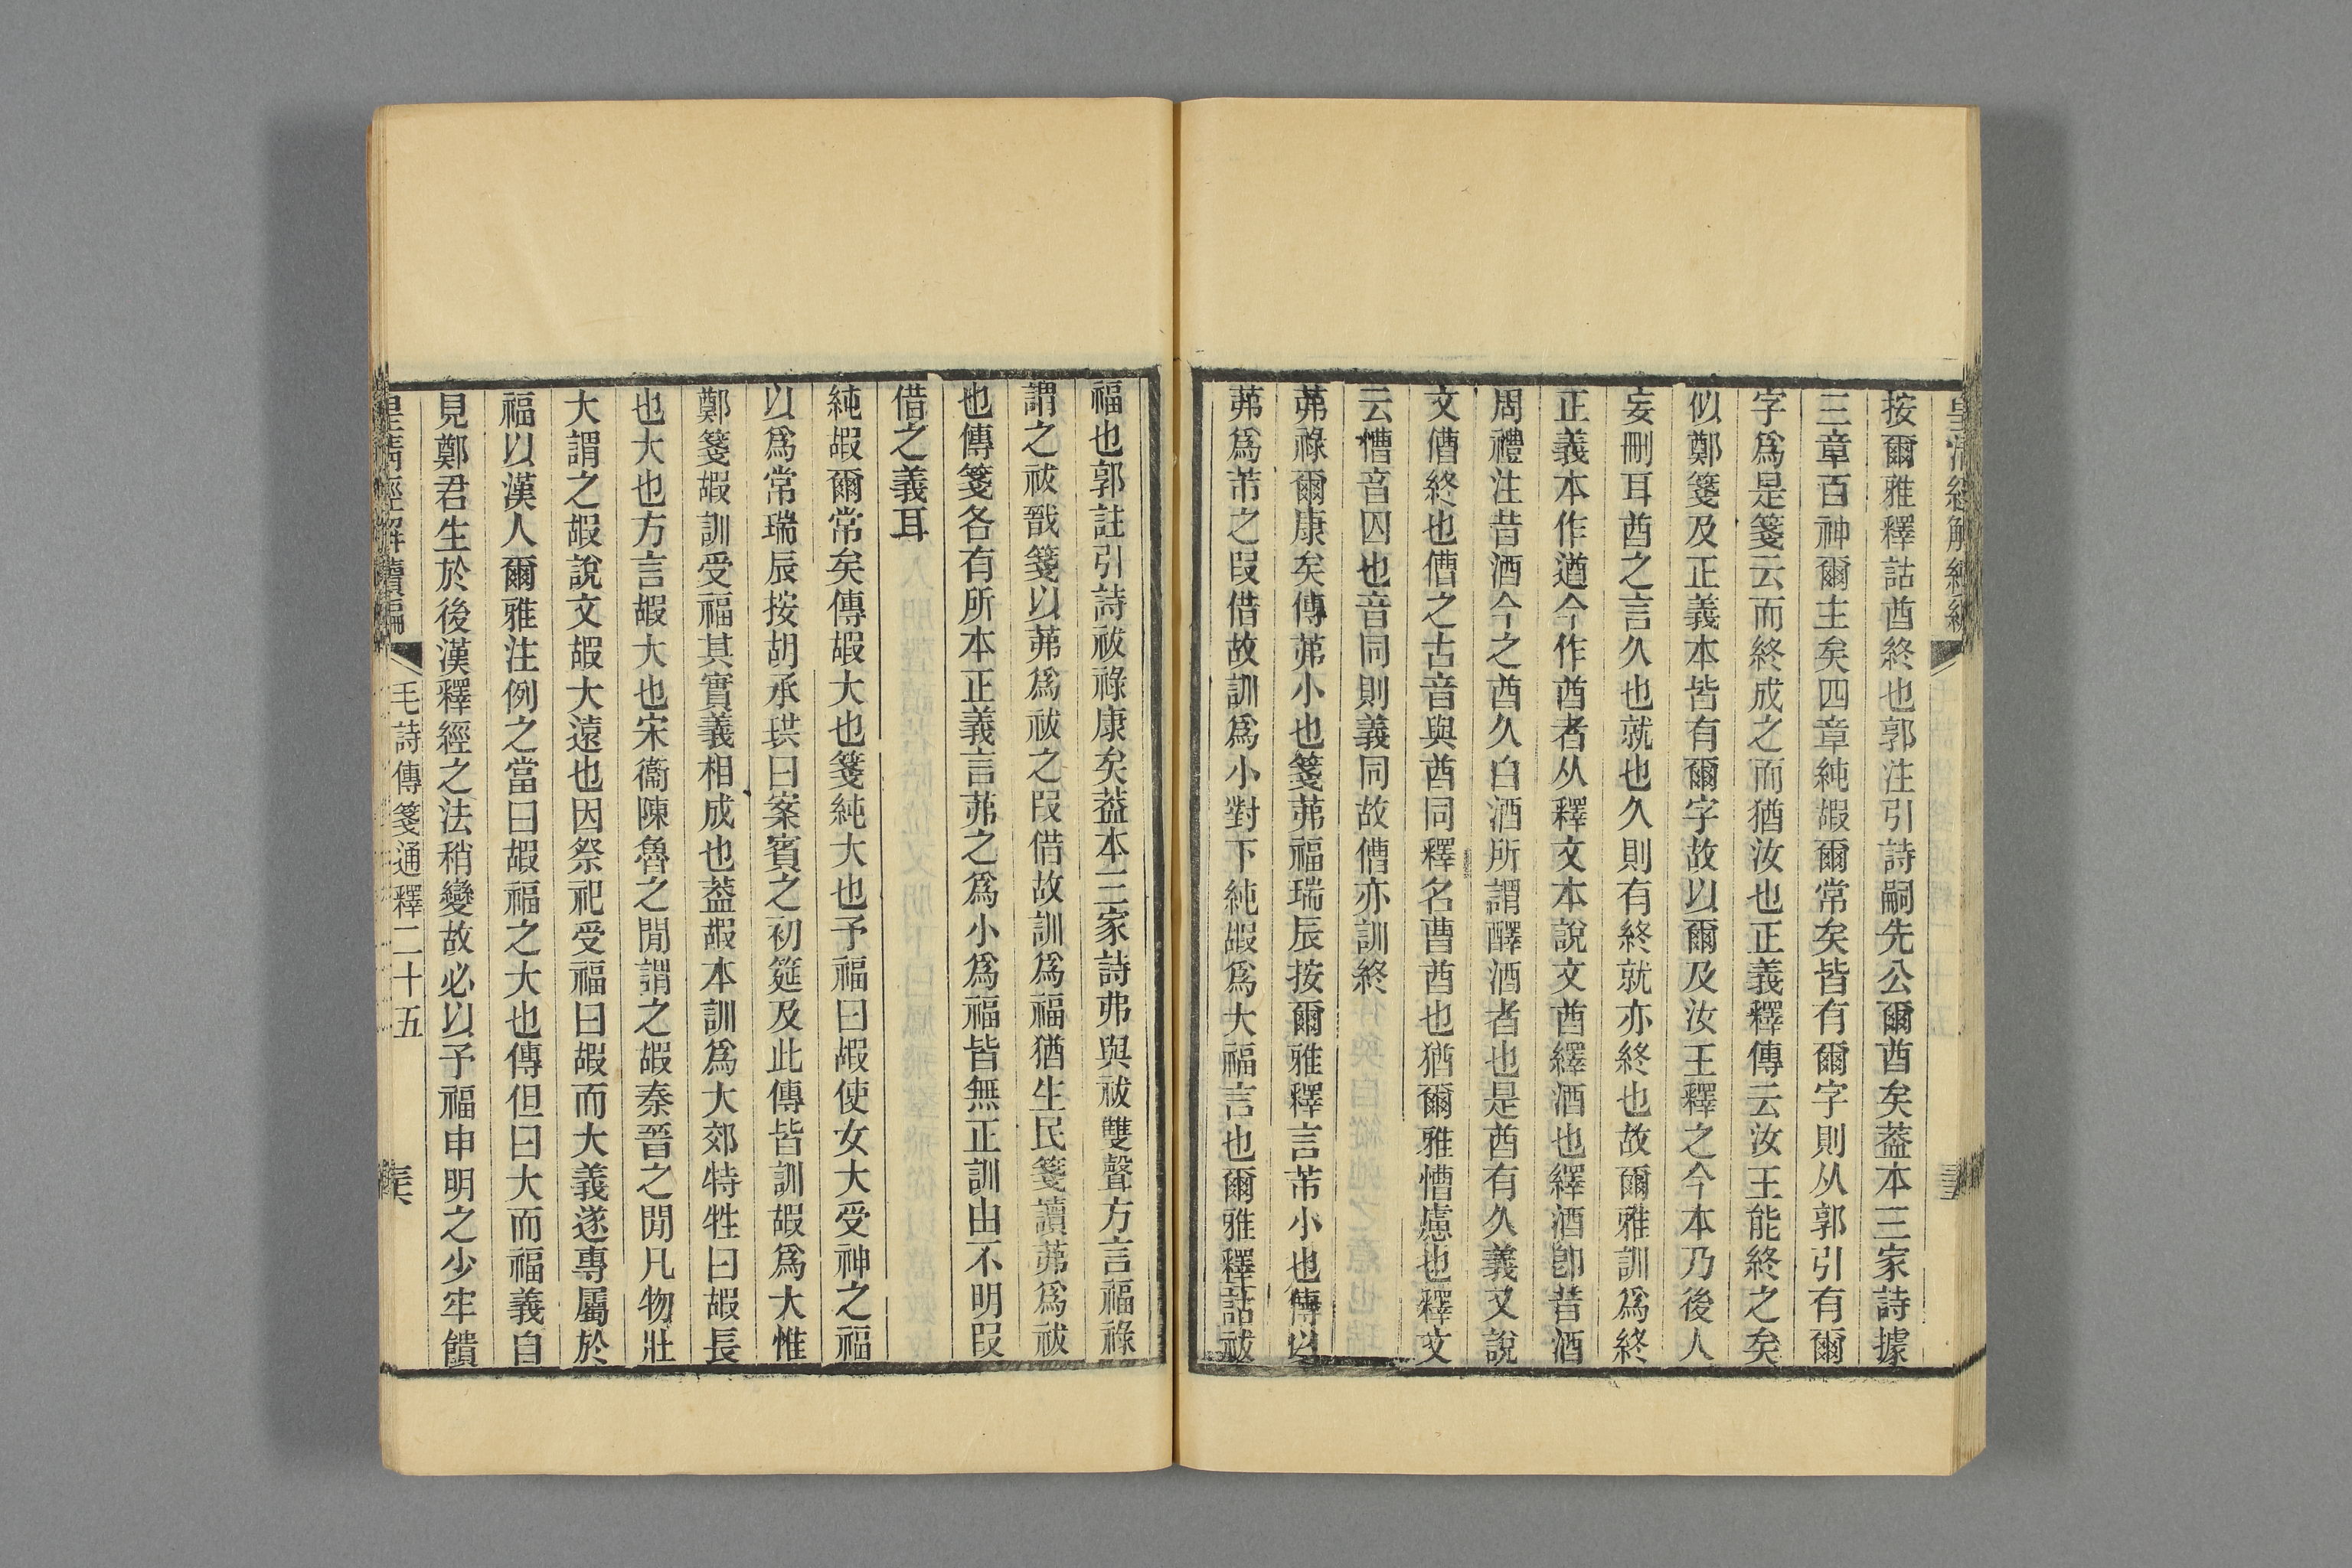 按爾雅釋詁酋終也郭注引詩嗣先公爾酋矣葢本三家詩據
三章百神爾主矣四章純嘏爾常矣皆有爾字則从郭引有爾
字爲是箋云而終成之而猶汝也正義釋傳云汝王能終之矣
似鄭箋及正義本皆有爾字故以爾及汝王釋之今本乃後人
妄刪耳酋之言久也就也久則有終就亦終也故爾雅訓爲終
正義本作遒今作酋者从釋文本說文酋繹酒也繹酒卽昔酒
周禮注昔酒今之酋久白酒所謂醳酒者也是酋有久義又說
文傮終也傮之古音與酋同釋名曹酋也猶爾雅慒慮也釋文
云慒音囚也音同則義同故傮亦訓終
茀祿爾康矣傳茀小也箋茀福瑞辰按爾雅釋言芾小也傳以
茀爲芾之叚借故訓爲小對下純嘏爲大福言也爾雅釋詁祓
福也郭註引詩祓祿康矣葢本三家詩弗與祓雙聲方言福祿
謂之祓戩箋以茀爲祓之叚借故訓爲福猶生民箋讀茀爲祓
也傳箋各有所本正義言茀之爲小爲福皆無正訓由不明叚
借之義耳
純嘏爾常矣傳嘏大也箋純大也予福曰嘏使女大受神之福
以爲常瑞辰按胡承珙曰案賓之初筵及此傳皆訓嘏爲大惟
鄭箋嘏訓受福其實義相成也葢嘏本訓爲大郊特牲曰嘏長
也大也方言嘏大也宋衞陳魯之閒謂之嘏秦晉之閒凡物壯
大謂之嘏說文嘏大遠也因祭祀受福曰嘏而大義遂專屬於
福以漢人爾雅注例之當曰嘏福之大也傳但曰大而福義自
見鄭君生於後漢釋經之法稍變故必以予福申明之少牢饋
皇淸經解續編 毛詩傳箋通釋二十五